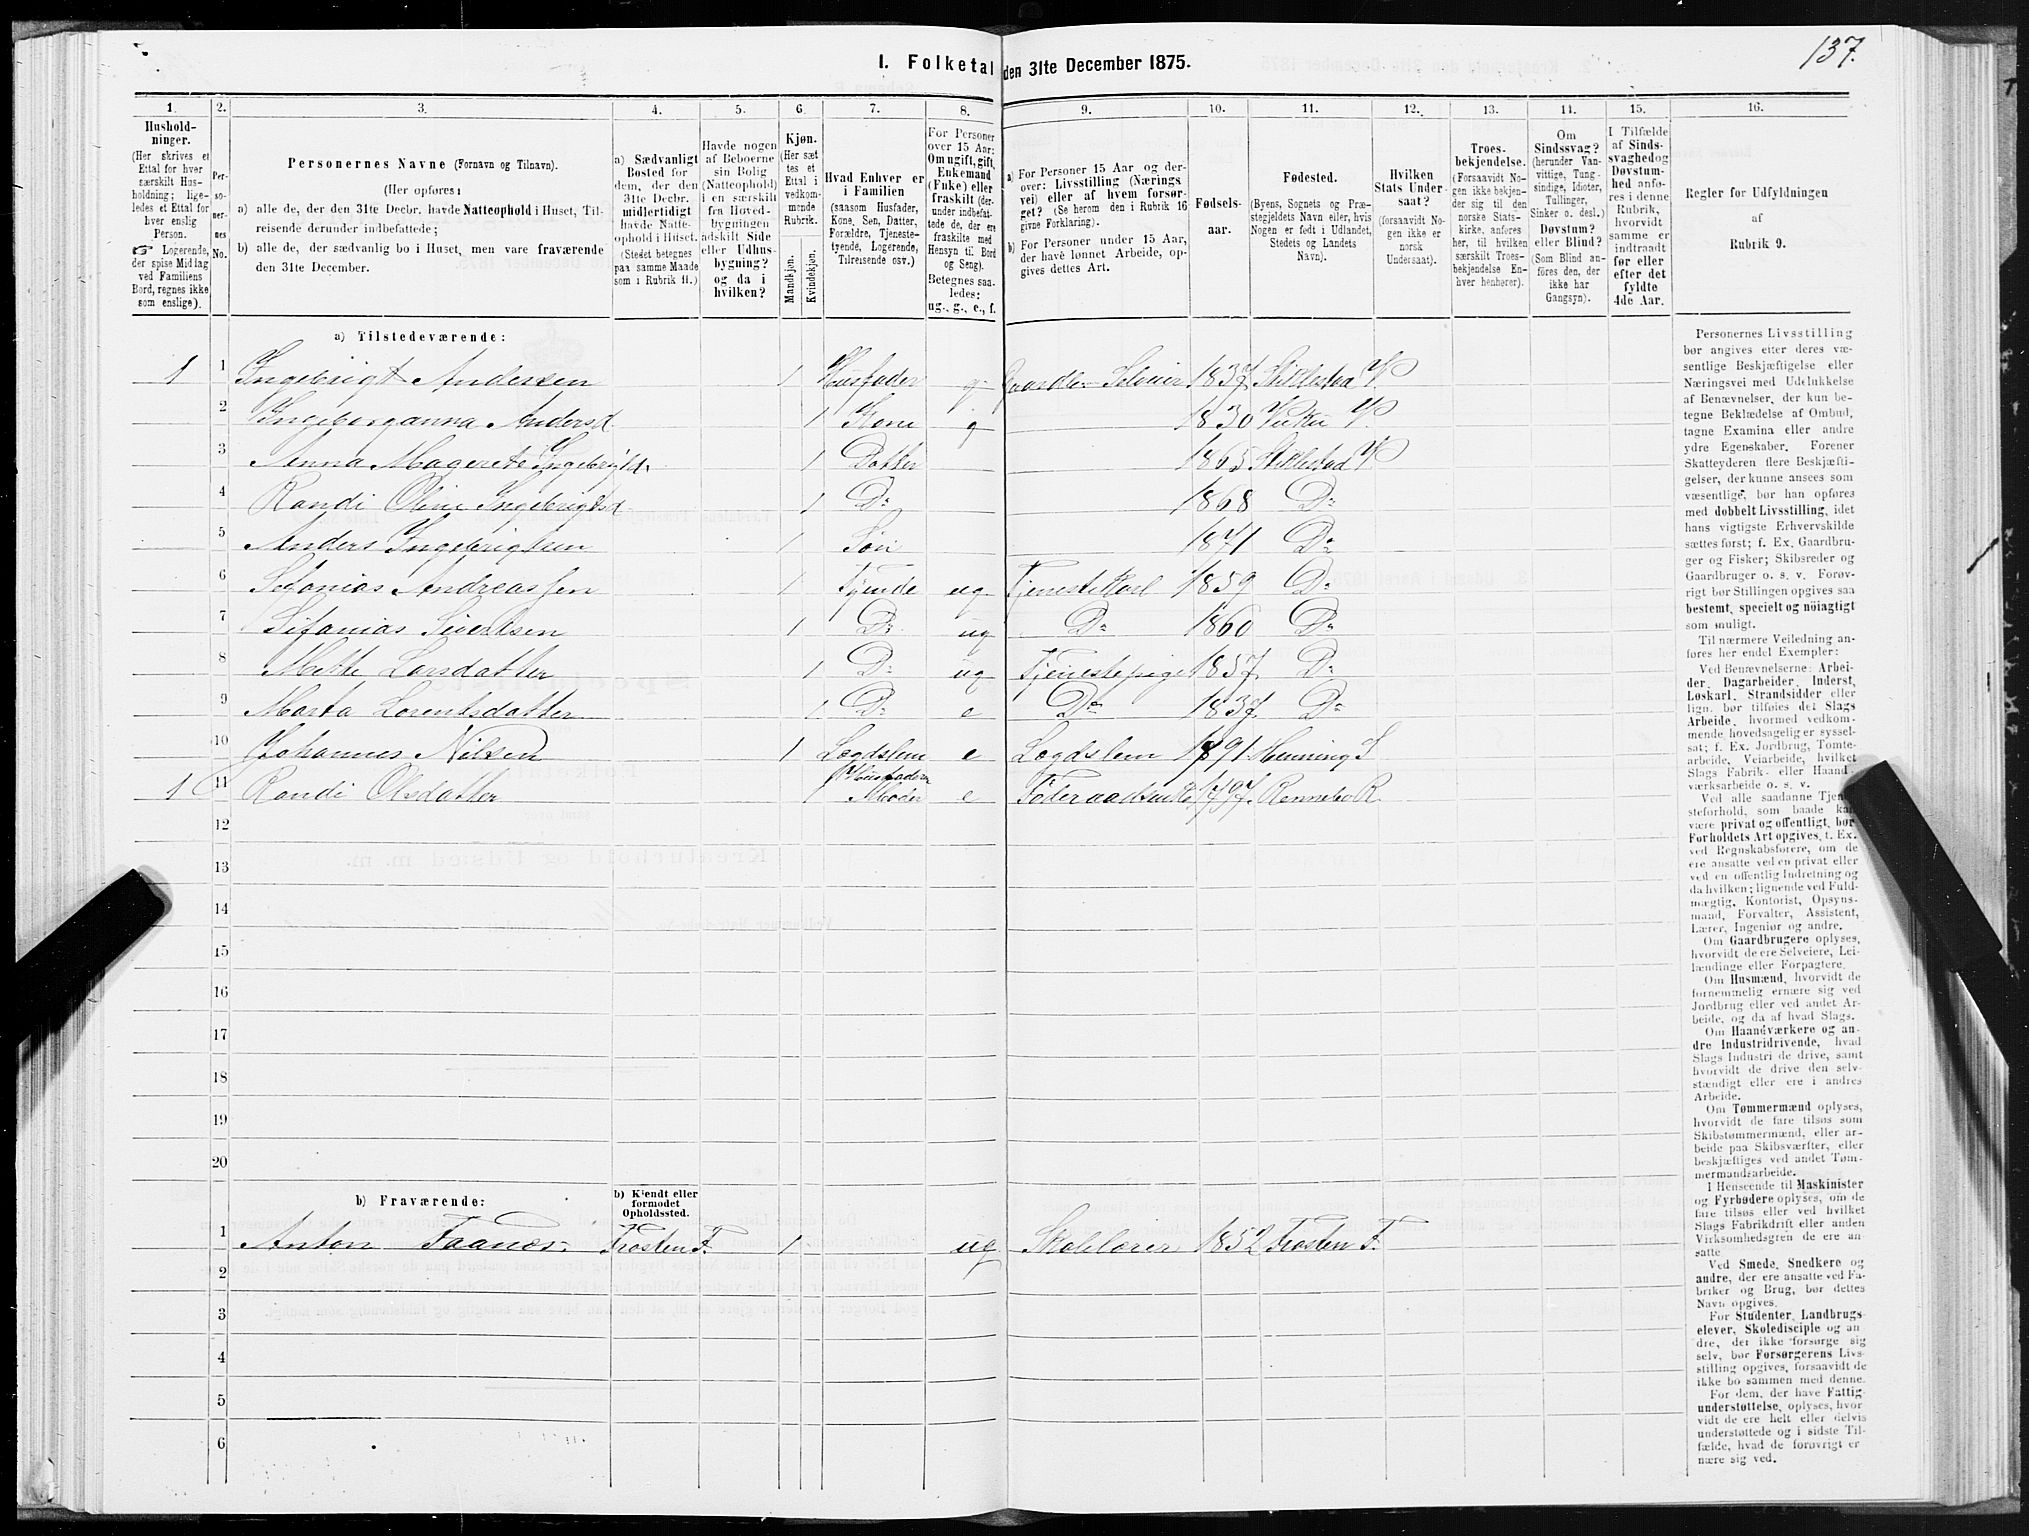 137.
I. Folketal den 31te December 1875.
1. 2. 3. 4. 5. 6. 7. 8. 9. 10. 11. 12. 13. 14. 15. 16.
Hushold-
ninger.
(Her skrives et
Ettal for hver
særskilt Hus-
holdning; lige-
ledes et Ettal for
hver enslig
Person.
☞ Logerende,
der spise Middag
ved Familiens
Bord, regnes ikke
som enslige).
Per-
so-
ner-
nes
No.
Personernes Navne (Fornavn og Tilnavn).
(Her opføres:
a) alle de, der den 31te Decbr. havde Natteophold i Huset, Til-
reisende derunder indbefattede;
b) alle de, der sædvanlig bo i Huset, men vare fraværende
den 31te December.
a) Sædvanligt
Bosted for
dem, der den
31te Decbr.
midlertidigt
havde Natte-
ophold i Huset.
(Stedet betegnes
paa samme Maade
som i Rubrik 11.)
Havde nogen
af Beboerne
sin Bolig
(Natteophold)
i en særskilt
fra Hoved-
bygningen
adskilt Side
eller Udhus-
bygning?
og da i
hvilken?
Kjøn.
(Her sæt
tes et
Ettal i
vedkom-
mende
Rubrik.
Mandkjøn.
Kvindekjøn.
Hvad Enhver er
i Familien
(saasom Husfader,
Kone, Søn, Datter,
Forældre, Tjeneste-
tyende, Logerende,
Tilreisende osv.)
For Personer
over 15 Aar;
Om ugift, gift,
Enkemand
(Enke) eller
fraskilt (der-
under indbefat-
tede de, der ere
fraskilte med
Hensyn til Bord
og Seng).
Betegnes saa-
ledes:
ug., g., e., f.
a) For Personer 15 Aar og der-
over: Livsstilling (Nærings
vei) eller af hvem forsør-
get? (Se herom den i Rubrik 16
givne Forklaring).
b) For Personer under 15 Aar,
der have lønnet Arbeide, op-
gives dettes Art.
Fødsels-
aar.
Fødested.
(Byens, Sognets og Præ-
stegjeldets Navn eller, hvis
Nogen er født i Udlandet,
Stedets og Landets
Navn).
Hvilken
Stats Under-
saat?
(forsaavidt No-
gen ikke er
norsk
Undersaat).
Troes-
bekjendelse.
(Forsaavidt No-
gen ikke bekjen-
der sig til den
norske Stats-
kirke, anføres
her, til hvilken
særskilt Troes-
bekjendelse En-
hver henhører).
Om
Sindssvag?
(herunder Van-
vittige, Tung-
sindige, Idioter,
Tullinger,
Sinker o. desl.)
Døvstum?
eller Blind?
(Som Blind an-
føres den, der
ikke har
Gangsyn).
I Tilfælde
af Sinds-
svaghed og
Døvstum-
hed anfø-
res i denne
Rubrik,
hvorvidt
samme er
indtraadt
før eller
efter det
fyldte
4de Aar.
Regler for Udfyldningen
af
Rubrik 9.
a) Tilstedeværende:
1 1 Ingebrigt Andersen 1 Husfader g Gaardbr Selveier 1837 Stiklestad V.
2 Ingeborganna Andersd 1 Kone g 1830 Vuku V.
3 Anna Magerete Ingebrigtd. 1 Datter 1865 Stiklestad V
4 Randi Oline Ingebrigtsd 1 Do 1868 Do
5 Anders Ingebrigtsen 1 Søn 1871 Do
6 Sefanias Andreassen 1 Tjende ug Tjenestekarl 1859 Do
7 Sifanias Sivertsen 1 Do ug Do 1860 Do
8 Mette Larsdatter 1 Do ug Tjenestepige 1857 Do
9 Marta Lorentsdatter 1 Do e Do 1837 Do
10 Johannes Nilsen 1 Lægdslem e Lægdslem 1791 Henning S
1 11 Randi Olsdatter 1 Husfaders Moder e 1797 Rennebo R.
12
13
14
15
16
17
18
19
20
b) Fraværende:
b) Kjendt eller
formodet
Opholdssted.
1 Anton Faanes Frosten F. 1 ug Skolelærer 1852 Frosten F.
2
3
4
5
6
Personernes Livsstilling
bør angives efter deres væ-
sentlige Beskjæftigelse eller
Næringsvei med Udelukkelse
af Benævnelser, der kun be-
tegne Beklædelse af Ombud,
tagne Examina eller andre
ydre Egenskaber. Forener
Skatteyderen flere Beskjæfti-
gelser, der kunne ansees som
væsentlige, bør han opføres
med dobbelt Livsstilling, idet
hans vigtigste Erhvervskilde
sættes først; f. Ex. Gaardbru-
ger og Fisker; Skibsreder og
Gaardbruger o. s. v. Forøv-
rigt bør Stillingen opgives saa
bestemt, specielt og nöiagtigt
som muligt.
Til nærmere Veiledning an-
føres her endel Exempler:
Ved Benævnelserne: Arbei-
der, Dagarbeider, Inderst,
Løskarl, Strandsidder eller
lign. bør tilføies det Slags
Arbeide, hvormed vedkom-
mende hovedsagelig er syssel-
sat; f. Ex. Jordbrug, Tomte-
arbeide, Veiarbeide, hvilket
Slags Fabrik- eller Haand-
værksarbeide o. s. v.
Ved alle saadanne Tjene-
steforhold, som baade kan
være privat og offentligt, bør
Forholdets Art opgives, f. Ex.
ved Regnskabsførere, om de
ere ansatte ved en privat eller
ved en offentlig Indretning og
da hvilken; lignende ved Fuld-
mægtig, Kontorist, Opsyns-
mand, Forvalter, Assistent,
Lærer, Ingeniør og andre.
Om Gaardbrugere oplyses,
hvorvidt de ere Selveiere, Lei-
lændinge eller Forpagtere.
Om Husmænd, hvorvidt de
fornemmelig ernære sig ved
Jordbrug eller ved andet Ar-
beide, og da af hvad Slags.
Om Haandværkere og an-
dre Industridrivende, hvad
Slags Industri de drive, samt
hvorvidt de drive den selv-
stændigt eller ere i andres
Arbeide.
Om Tømmermænd oplyses,
hvorvidt de fare tilsøs som
Skibstømmermænd, eller ar-
beide paa Skibsværfter, eller
beskjæftiges ved andet Tøm-
mermandsarbeide.
I Henseende til Maskinister
og Fyrbødere oplyses, om de
fare tilsøs eller ved hvilket
Slags Fabrikdrift eller anden
Virksomhedsgren de ere an-
satte.
Ved Smede, Snedkere og
andre, der ere ansatte ved Fa-
briker og Brug, bør dettes
Navn opgives.
For Studenter, Landbrugs-
elever, Skoledisciple og an-
dre, der ikke forsørge sig
selv, bør Forsørgerens Livs-
stilling opgives, forsaavidt de
ikke bo sammen med denne.
For dem, der have Fattig-
understøttelse, oplyses, hvor
vidt de ere helt eller delvis
understøttede og i sidste Til-
fælde, hvad de forøvrigt er
nære sig ved.